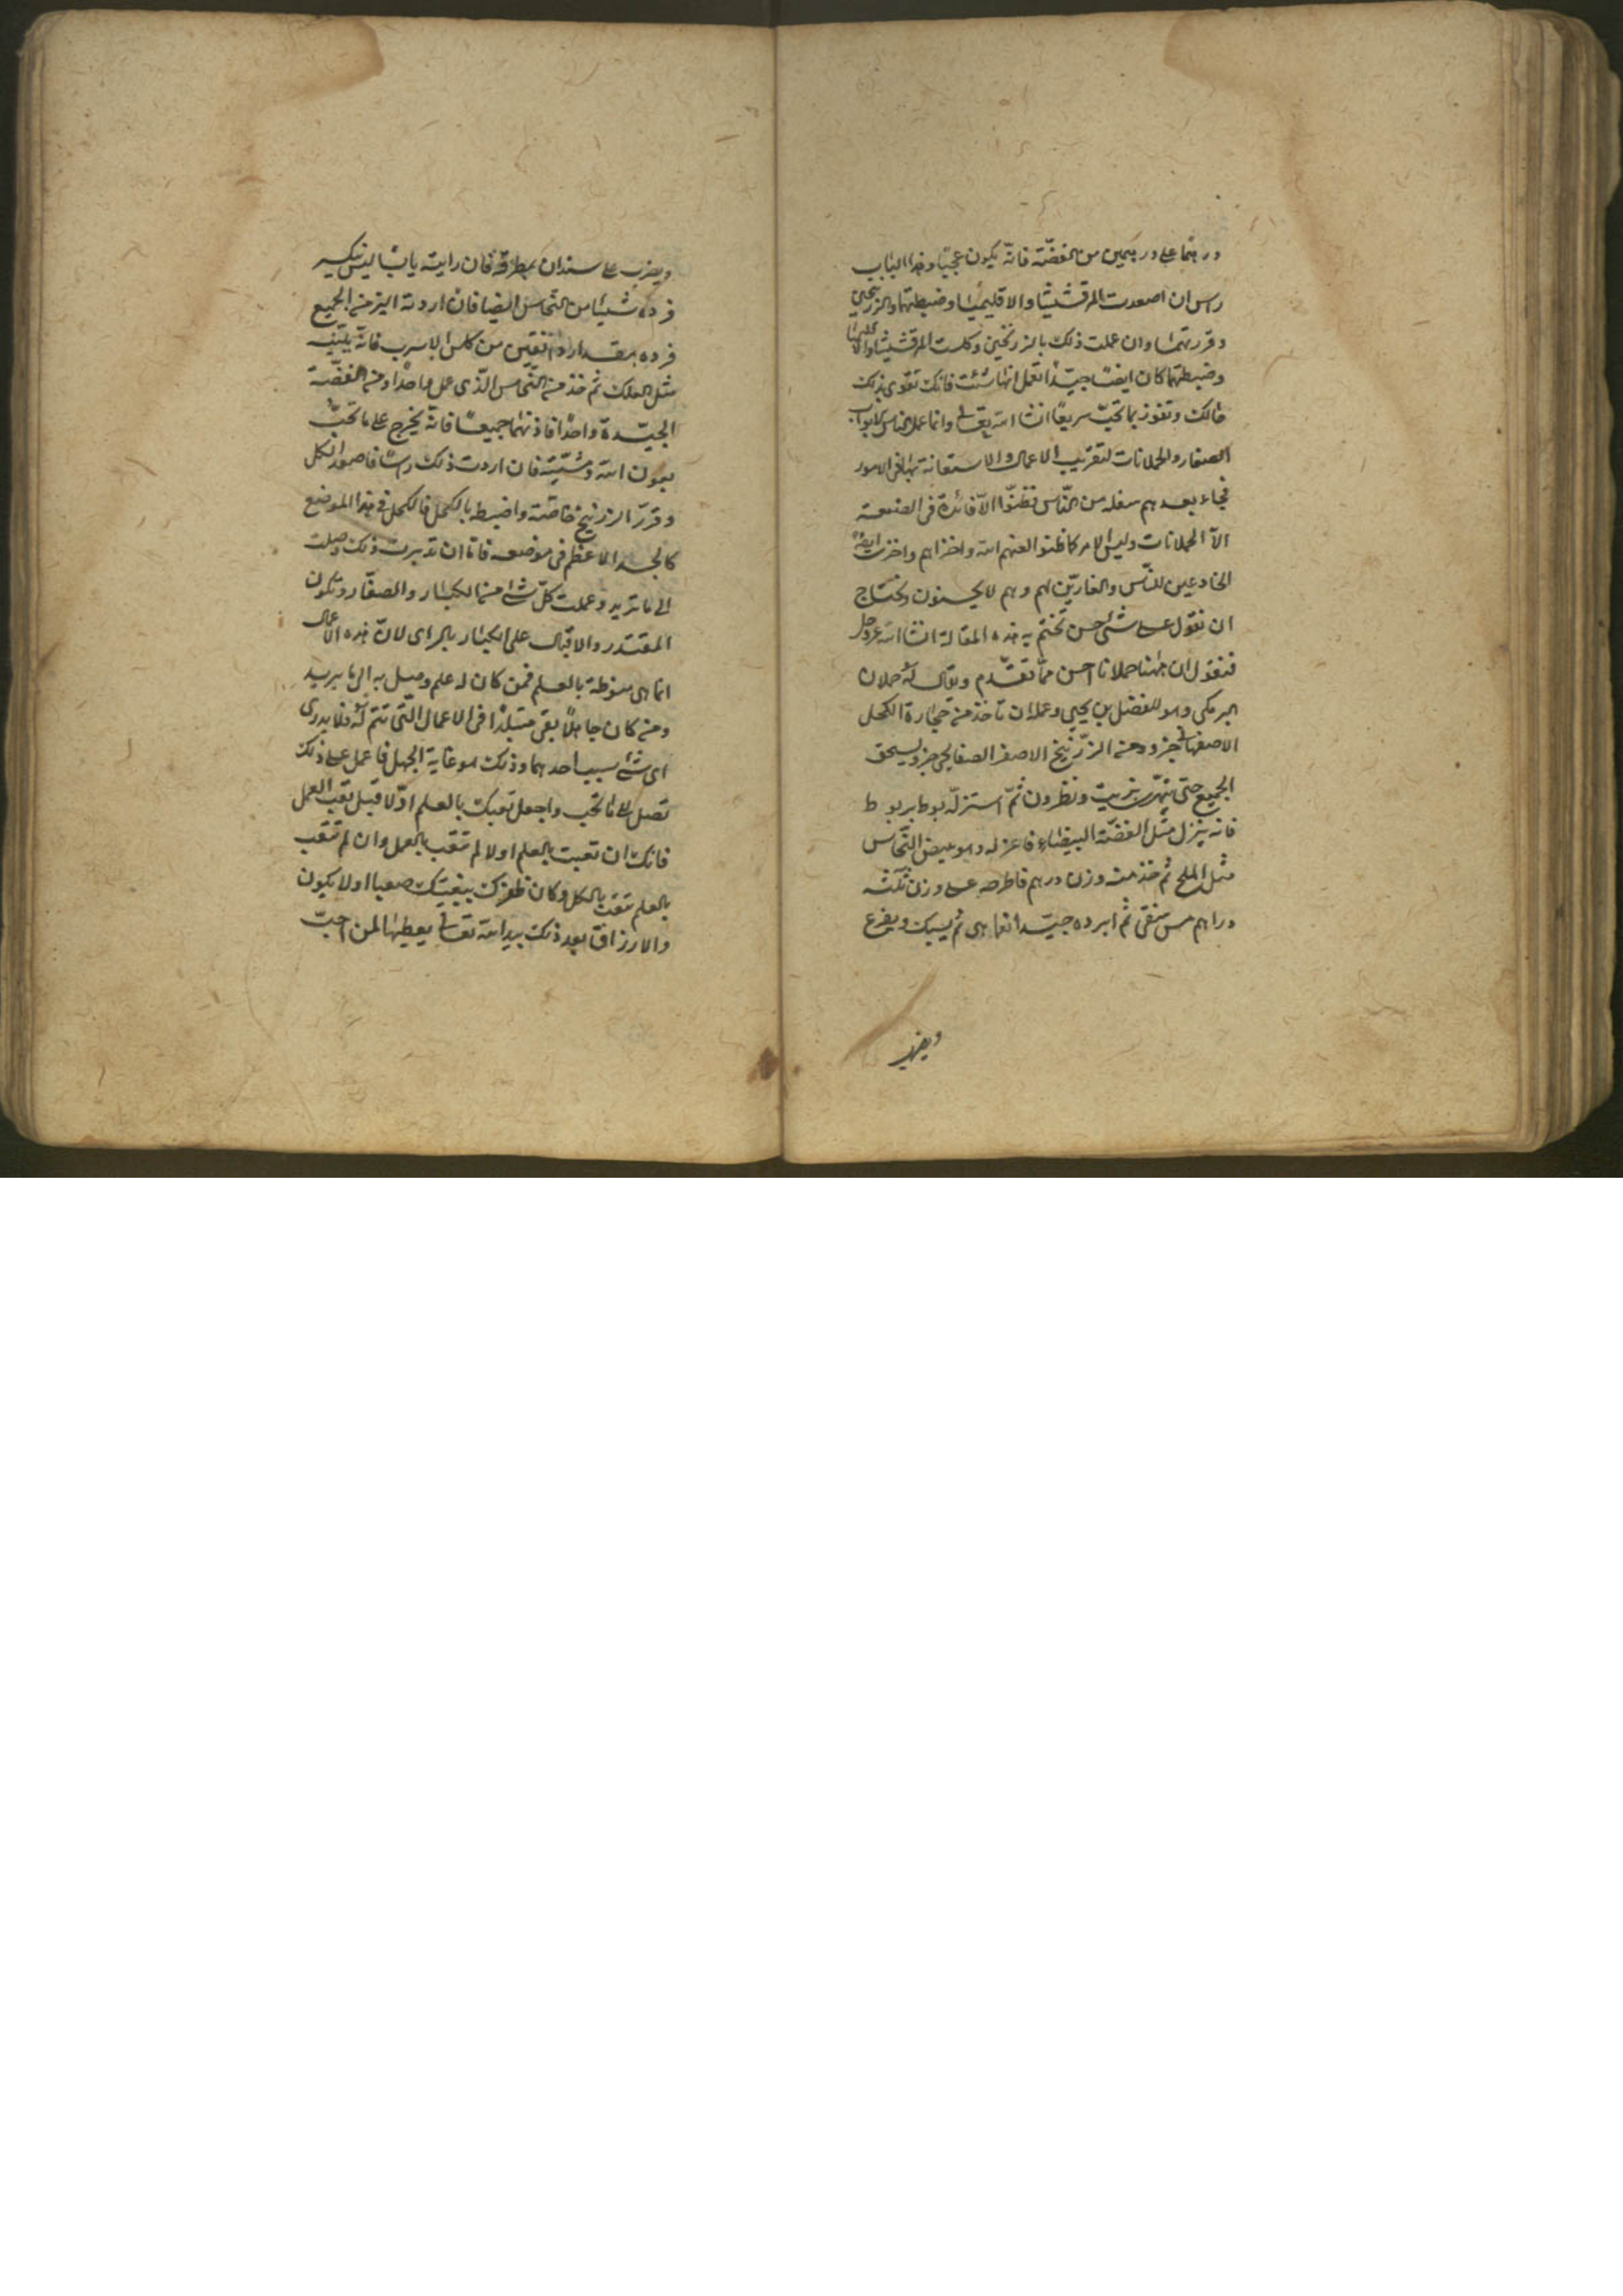 درهما على درهمين من الفضة فانه يكون عجيبا وهذا الباب
راس ان اصعدت المرقشيشا والاقليميا وضبطتهما والزرنيخين
وقررتهما وان عملت ذلك بالزرنيخين وكلست المرقشيشا والاقليميا
وضبطتهما كان ايضا جيدا تعمل ايها شئت فانك تقوى بذلك
حالك وتفوز بما تحب سريعا انشا الله تعالى وانما عمل الناس الابواب
الصغار والحملانات لتقريب الاعمال والاستعانة بها على الامور
فجاء بعدهم سفلة من الناس فظنوا الا فائدة فى الصنعة
الا الحملانات وليس الامر كما ظنوا لعنهم الله واخزاهم واخزى ايضا
الخادعين للناس والغارين لهم وهم لا يحسنون ونحتاج
ان نقول على شئ حسن نختم به هذه المقالة انشا الله عز وجل
فنقول ان ههنا حملانا احسن مما تقدم ويقال له حملان
البرمكى وهو للفضل بن يحيى وعمله ان تاخذ من حجارة الكحل
الاصفهانى جزو ومن الزرنيخ الاصفر الصفايحى جزو يسحق
الجميع حتى يتهرى بزيت ونطرون ثم استنزله بوط بربوط
فانه ينزل مثل الفضة البيضاء فاعزله وهو يبيض النحاس
مثل الملح ثم خذ منه وزن درهم فاطرحه على وزن ثلثة
دراهم مس منقى ثم ابرده جيدا نعما هى ثم يسبك ويفرغ
ويضرب
ويضرب على سندان بمطرقة فان رايته يابسا ليس ينكسر
فزده شيئا من النحاس ايضا فان اردته الين من الجميع
فزده بمقدار دانقين من كلس الاسرب فانه يلينه
مثل العلك ثم خذ من النحاس الذى عمل واحدا ومن الفضة
الجيدة واحدا فاذبهما جميعا فانه يخرج على ما تحب
بعون الله ومشيته فان اردت ذلك راسا فاصعد الكل
وقرر الزرنيخ خاصة واضبطه بالكحل فالكحل فى هذا الموضع
كالجسد الاعظم فى موضعه فانا ان تدبرت ذلك وصلت
الى ما تريد وعملت كل شئ من الكبار والصغار وتكون
المقتدر والاقبال على الكبار بالراى لان هذه الاعمال
انما هى منوطة بالعلم فمن كان له علم وصل به الى ما يريد
ومن كان جاهلا بقى متبلدا فى الاعمال التى تتم له ولا يدرى
اى شئ سبب احدهما وذلك هو غاية الجهل فاعمل على ذلك
تصل الى ما تحب واجعل تعبك بالعلم اولا قبل تعب العمل
فانك ان تعبت بالعلم اولا لم تتعب بالعمل وان لم تتعب
بالعلم تتعب بالكل وكان ظفرك ببغيتك صعبا اولا يكون
والارزاق بعد ذلك بيد الله تعالى يعطيها لمن احب